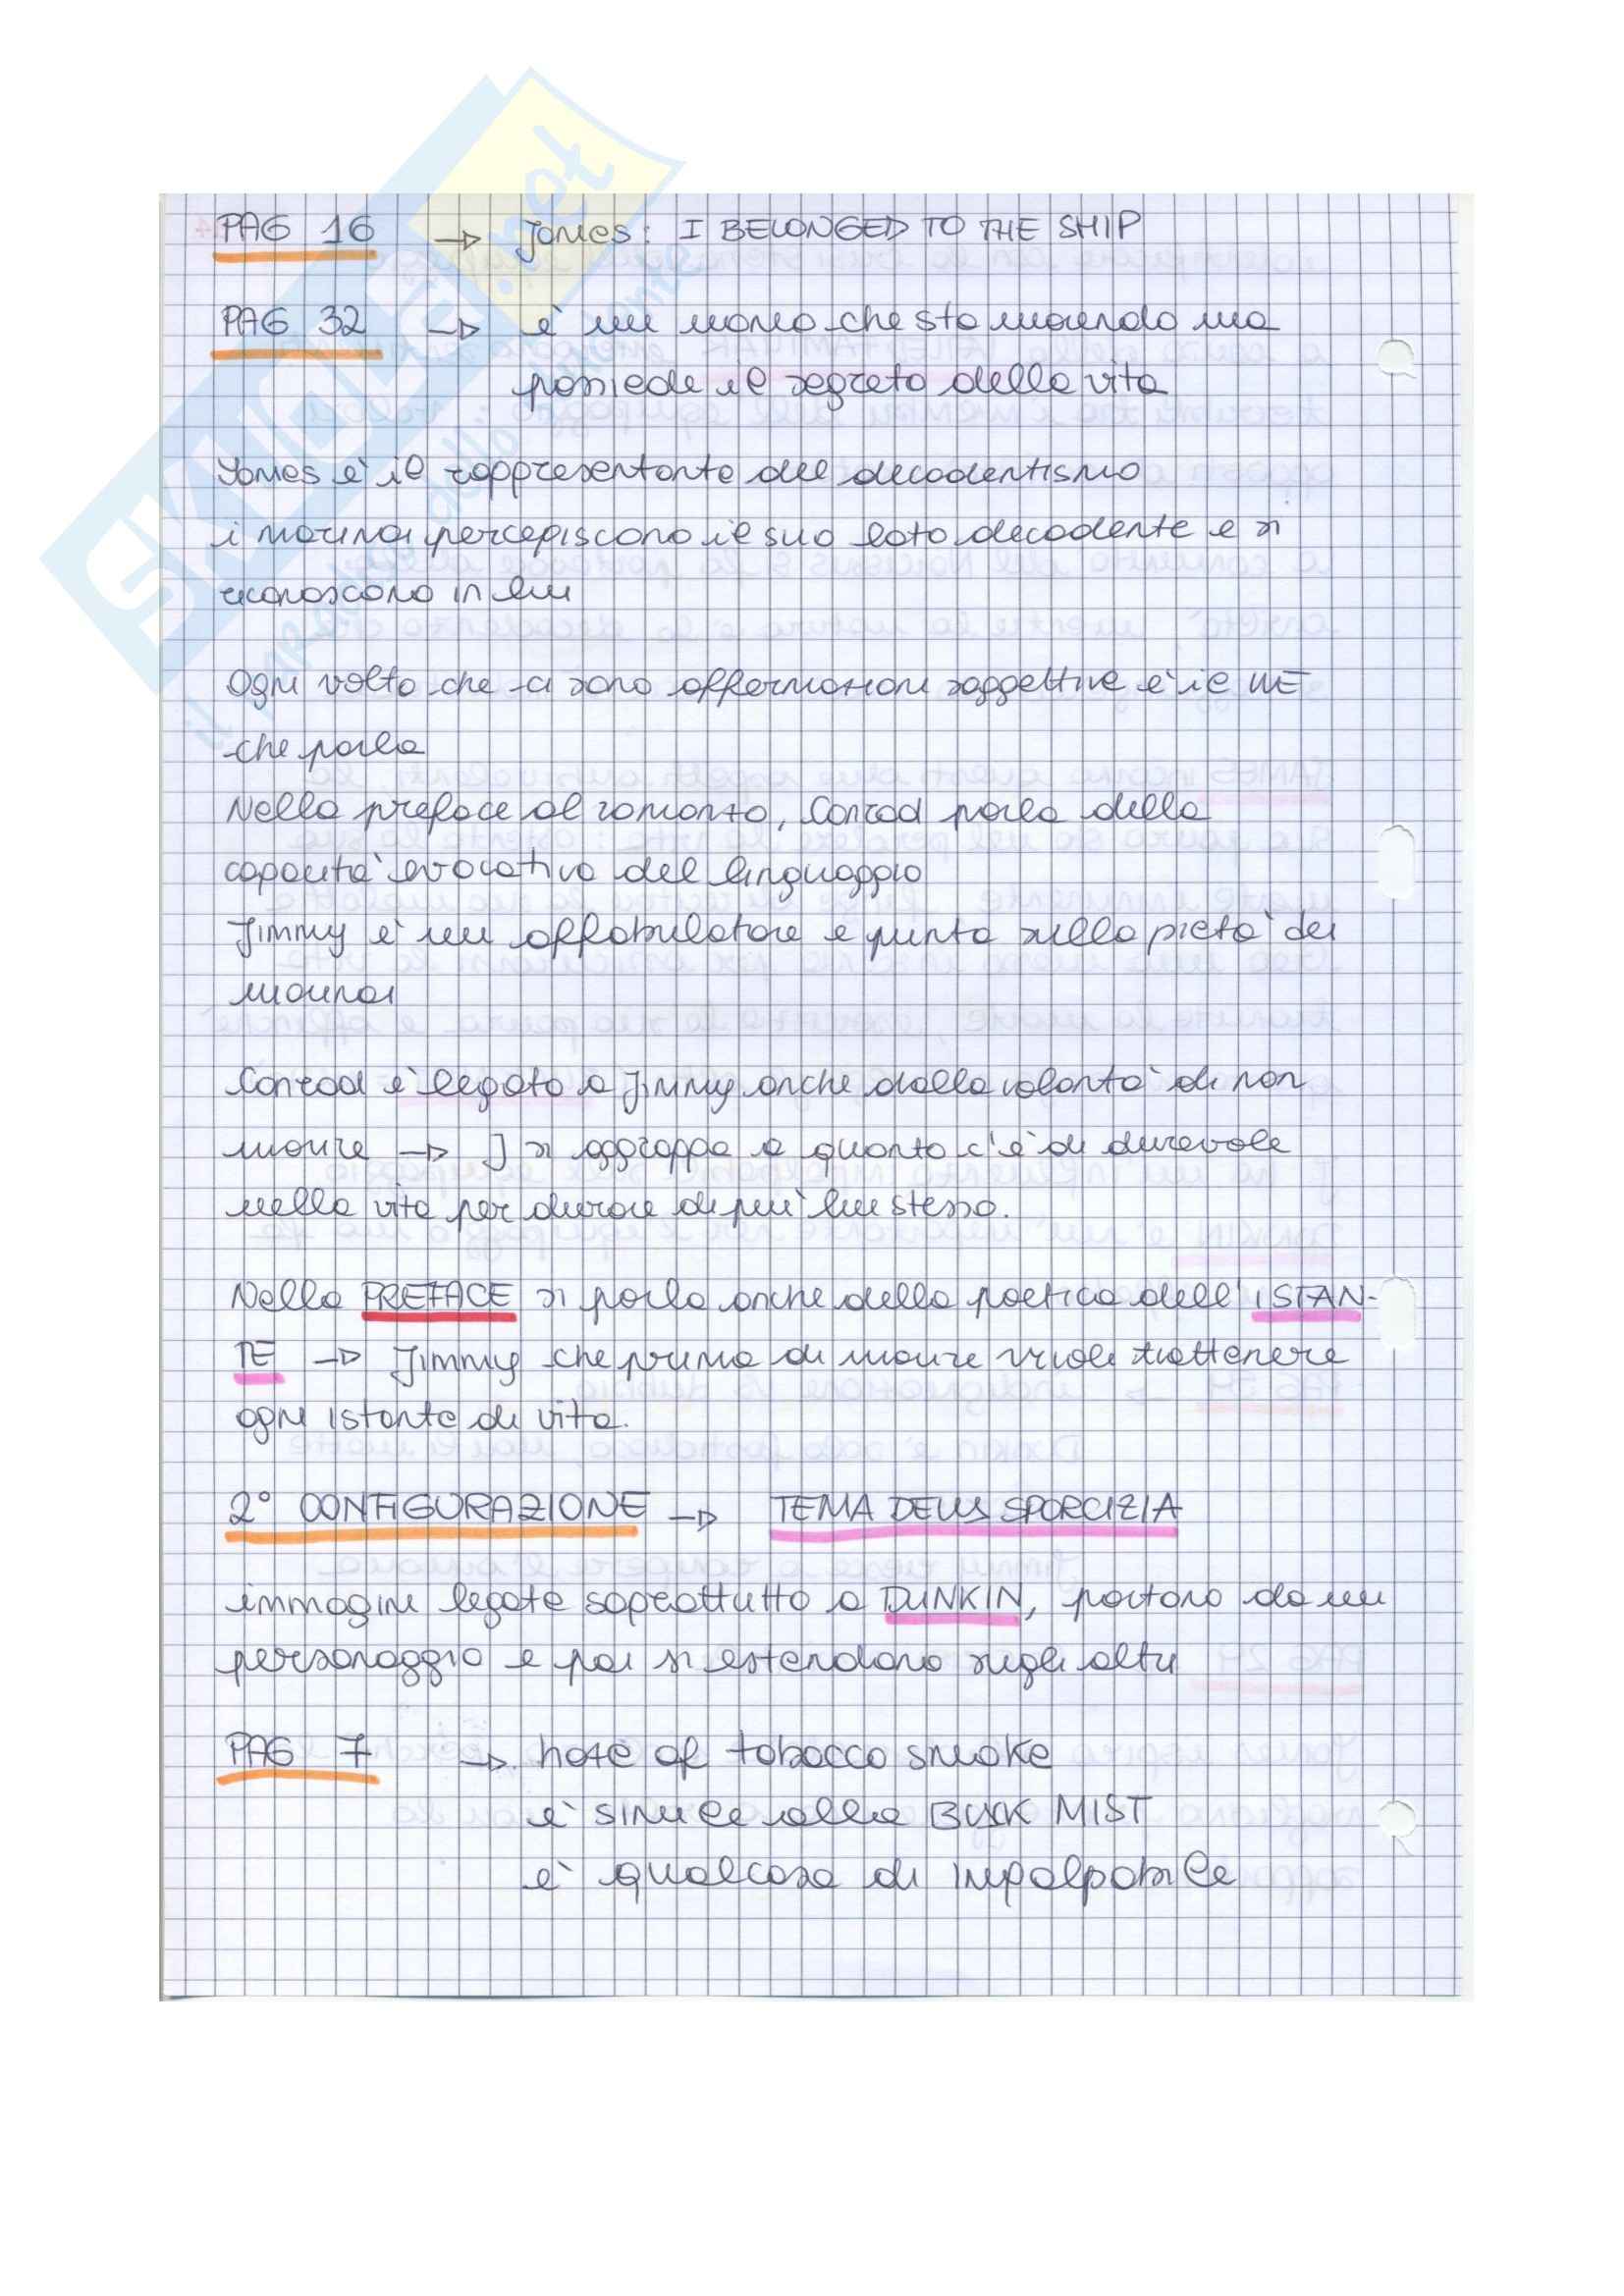 PAG 16 → James: I BELONGED TO THE SHIP
PAG 32 → è un uomo che sta morendo ma
possiede il segreto della vita
James è il rappresentante del decadentismo
i marinai percepiscono il suo lato decadente e si
riconoscono in lui
Ogni volta che ci sono affermazioni soggettive è il WE
che parla
Nella preface al romanzo, Conrad parla della
capacità evocativa del linguaggio
Jimmy è un affabulatore e punta sulla pietà dei
marinai
Conrad è legato a Jimmy anche dalla volontà di non
morire → J si aggrappa a quanto c'è di durevole
nella vita per durare di più lui stesso.
Nella PREFACE si parla anche della poetica dell'ISTAN-
TE → Jimmy che prima di morire vuole trattenere
ogni istante di vita.
2° CONFIGURAZIONE → TEMA DELLA SPORCIZIA
immagini legate soprattutto a DUNKIN, partono da un
personaggio e poi si estendono sugli altri
PAG 7 → haze of tobacco smoke
è simile alla BLACK MIST
è qualcosa di impalpabile
SKUOLA.net